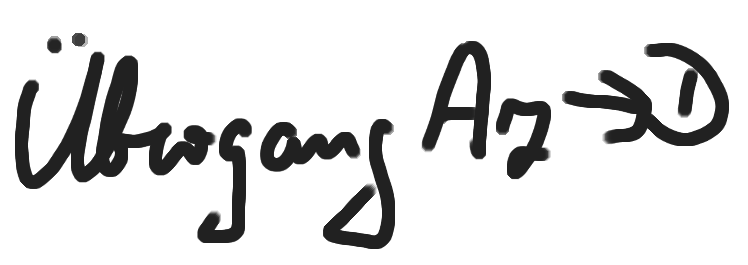 Übergang Az → D